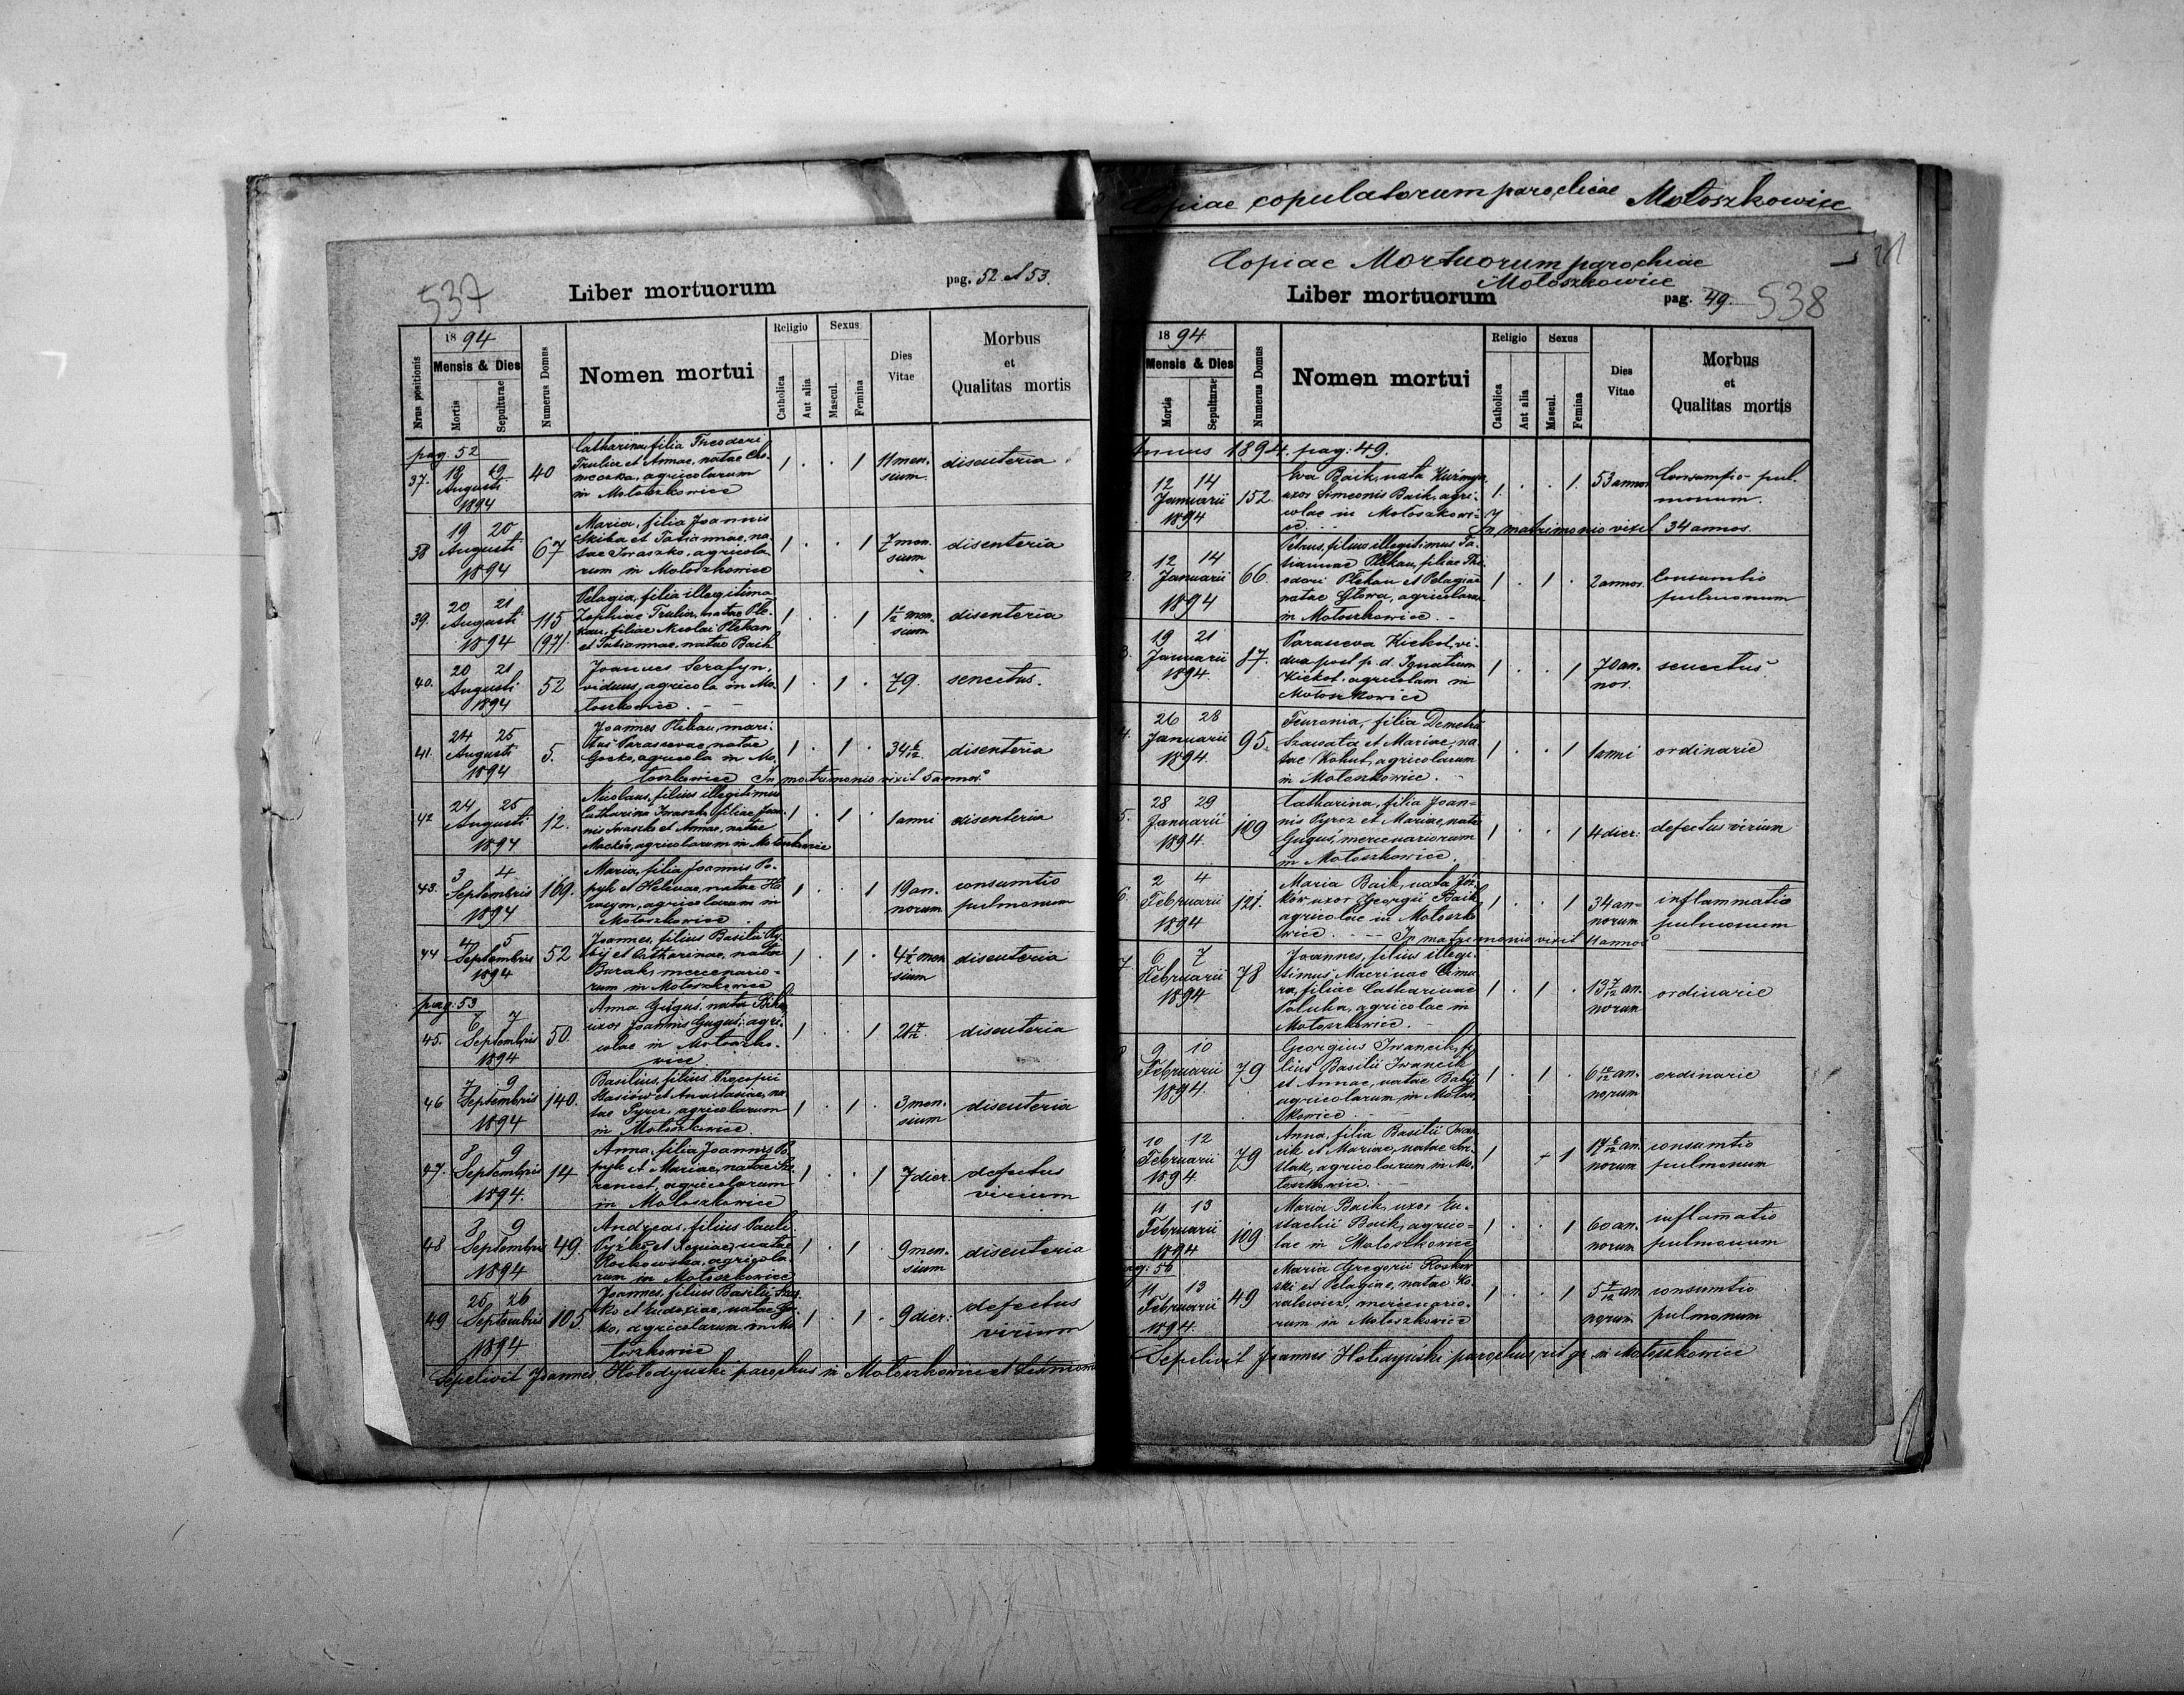 537
Liber mortuorum
pag. 52 et 53.
Nrus positionis
1894
Mensis & Dies
Mortis
Sepulturae
Numerus Domus
Nomen mortui
Religio
Catholica
Aut alia
Sexus
Mascul.
Femina
Dies
Vitae
Morbus
et
Qualitas mortis
pag. 52
37. 18 19 Augusti 1894 40
Catharina, filia Theodori
Trulia et Annae, natae
agricolarum
in Motoszkowice
1 . . 1 11 men-
sium.
disenteria
38 19 20 Augusti 1894 67
Maria, filia Joannis
Skiba et Tatiannae, na-
tae Iwaszko, agricola-
rum in Motoszkowice
1 . . 1 7 men-
sium
disenteria
39. 20 21 Augusti 1894 115 (97)
Pelagia, filia illegitima
Zophiae Trulia, natae Ple-
kan, filiae Nicolai Plekan
et Tatiannae, natae Baik
1 . . 1 1/2 men-
sium
disenteria
40. 20 21 Augusti 1894 52
Joannes Serafyn,
viduus, agricola in Mo-
toszkowice.
1 . 1 . 79. senectus.
41. 24 25 Augusti 1894 5.
Joannes Plekan, mari-
tus Parascevae, natae
Gocko, agricola in Mo-
toszkowice In matrimonio vixit 5 annos
1 . 1 . 34 6/12. disenteria
42 24 25 Augusti 1894 12.
Nicolaus, filius illegitimus
Catharina Iwaszko, filiae Joan-
nis Iwaszko et Annae, natae
agricolarum in Motoszkowice
1 . 1 . 1 anni disenteria
43. 3 4 Septembris 1894 169.
Maria, filia Joannis Po-
pyk et Helenae, natae Ho-
agricolarum in
Motoszkowice
1 . . 1 19 an-
norum
consumtio
pulmonum
44 4 5 Septembris 1894 52
Joannes, filius Basilii
et Catharinae, natae
Burak, mercenario-
rum in Motoszkowice
1 . 1 . 4 1/2 men-
sium
disenteria
pag. 53
45. 6 7 Septembris 1894 50.
Anna Guguś, nata
uxor Joannis Guguś, agri-
colae in Motoszko-
wice
1 . . 1 disenteria
46 7 9 Septembris 1894 140.
Basilius, filius Procopii
Stasiów et Anastasiae, na-
tae Pyrcz, agricolarum
in Motoszkowice.
1 . 1 . 3 men-
sium
disenteria
47. 8 9 Septembris 1894. 14
Anna, filia Joannis Po-
pyk et Mariae, natae
agricolarum
in Motoszkowice
1 . . 1 7 dier.
defectus
virium
48 8 9 Septembris 1894 49.
Andreas, filius Pauli
et Xeniae, natae
Roskowska, agricola-
rum in Motoszkowice
1 . 1 . 9 men-
sium
disenteria
49 25 26 Septembris 1894. 105
Joannes, filius Basilii
et Eudoxiae, natae
agricolarum in Mo-
toszkowice
1 . 1 . 9 dier:
defectus
virium
Sepelivit Joannes Hołodyński parochus in Motoszkowice et
Copiae copulatorum parochiae Motoszkowice
Copiae Mortuorum parochiae
Motoszkowice
Liber mortuorum
pag. 49
538
1894
Mensis & Dies
Mortis
Sepulturae
Numerus Domus
Nomen mortui
Religio
Catholica
Aut alia
Sexus
Mascul.
Femina
Dies
Vitae
Morbus
et
Qualitas mortis
Annus 1894. pag: 49.
12 14 Januarii 1894 152.
Eva Baik, nata
uxor Simeonis Baik, agri-
colae in Motoszkowi-
ce In matrimonio vixit 34 annos.
1. . . 1. 53 annos
Consumptio pul-
monum.
2. 12 14 Januarii 1894 66.
Petrus, filius illegitimus Ta-
tiannae Plekan, filiae The-
odori Plekan et Pelagiae
natae Głowa, agricolarum
in Motoszkowice.
1 . 1 . 2 annos.
Consumtio
pulmonum
3. 19 21 Januarii 1894 87.
Parasceva Kickot, vi-
dua post p. d. Ignatium
Kickot, agricolam in
Motoszkowice
1 . . 1 70 an-
nos.
senectus
4. 26 28 Januarii 1894. 95.
Feuronia, filia Demetri
Szawała et Mariae, na-
tae Kohut, agricolarum
in Motoszkowice.
1 . . 1 1 anni ordinarie
5. 28 29 Januarii 1894 109
Catharina, filia Joan-
nis Pyrcz et Mariae, natae
Guguś, mercenariorum
in Motoszkowice.
1 . . 1 4 dier: defectus virium
6. 2 4 Februarii 1894 121.
Maria Baik, nata
uxor Georgii Baik,
agricolae in Motoszko-
wice. In matrimonio vixit 11 annos
1 . . 1 34 an-
norum
inflammatio
pulmonum
7 6 7 Februarii 1894 78
Joannes, filius illegi-
timus Macrinae
filiae Catharinae
Poluha, agricolae in
Motoszkowice.
1 . 1 . 13 7/12 an-
norum
ordinarie
9 10 Februarii 1894. 79
Georgius Iwancik, fi-
lius Basilii Iwancik
et Annae, natae Babij
agricolarum in Motosz-
kowice
1 . 1 . 6 10/12 an-
norum
ordinarie
10 12 Februarii 1894 79
Anna, filia Basilii Iwan-
cik et Mariae, natae
agricolarum in Mo-
toszkowice.
1 1 17 6/12 an-
norum
consumtio
pulmonum
11 13 Februarii 1894 109
Maria Baik, uxor Eu-
stachii Baik, agrico-
lae in Motoszkowice
1 . . 1 60 an-
norum
inflamatio
pulmonum
pag: 50
11 13 Februarii 1894. 49
Maria Gregorii Roskow-
ski et Pelagiae, natae Ko-
walewicz, mercenario-
rum in Motoszkowice
1 . . 1 an-
norum
consumtio
pulmonum
Sepelivit Joannes Hołodyński parochus rit. gr. in Motoszkowice